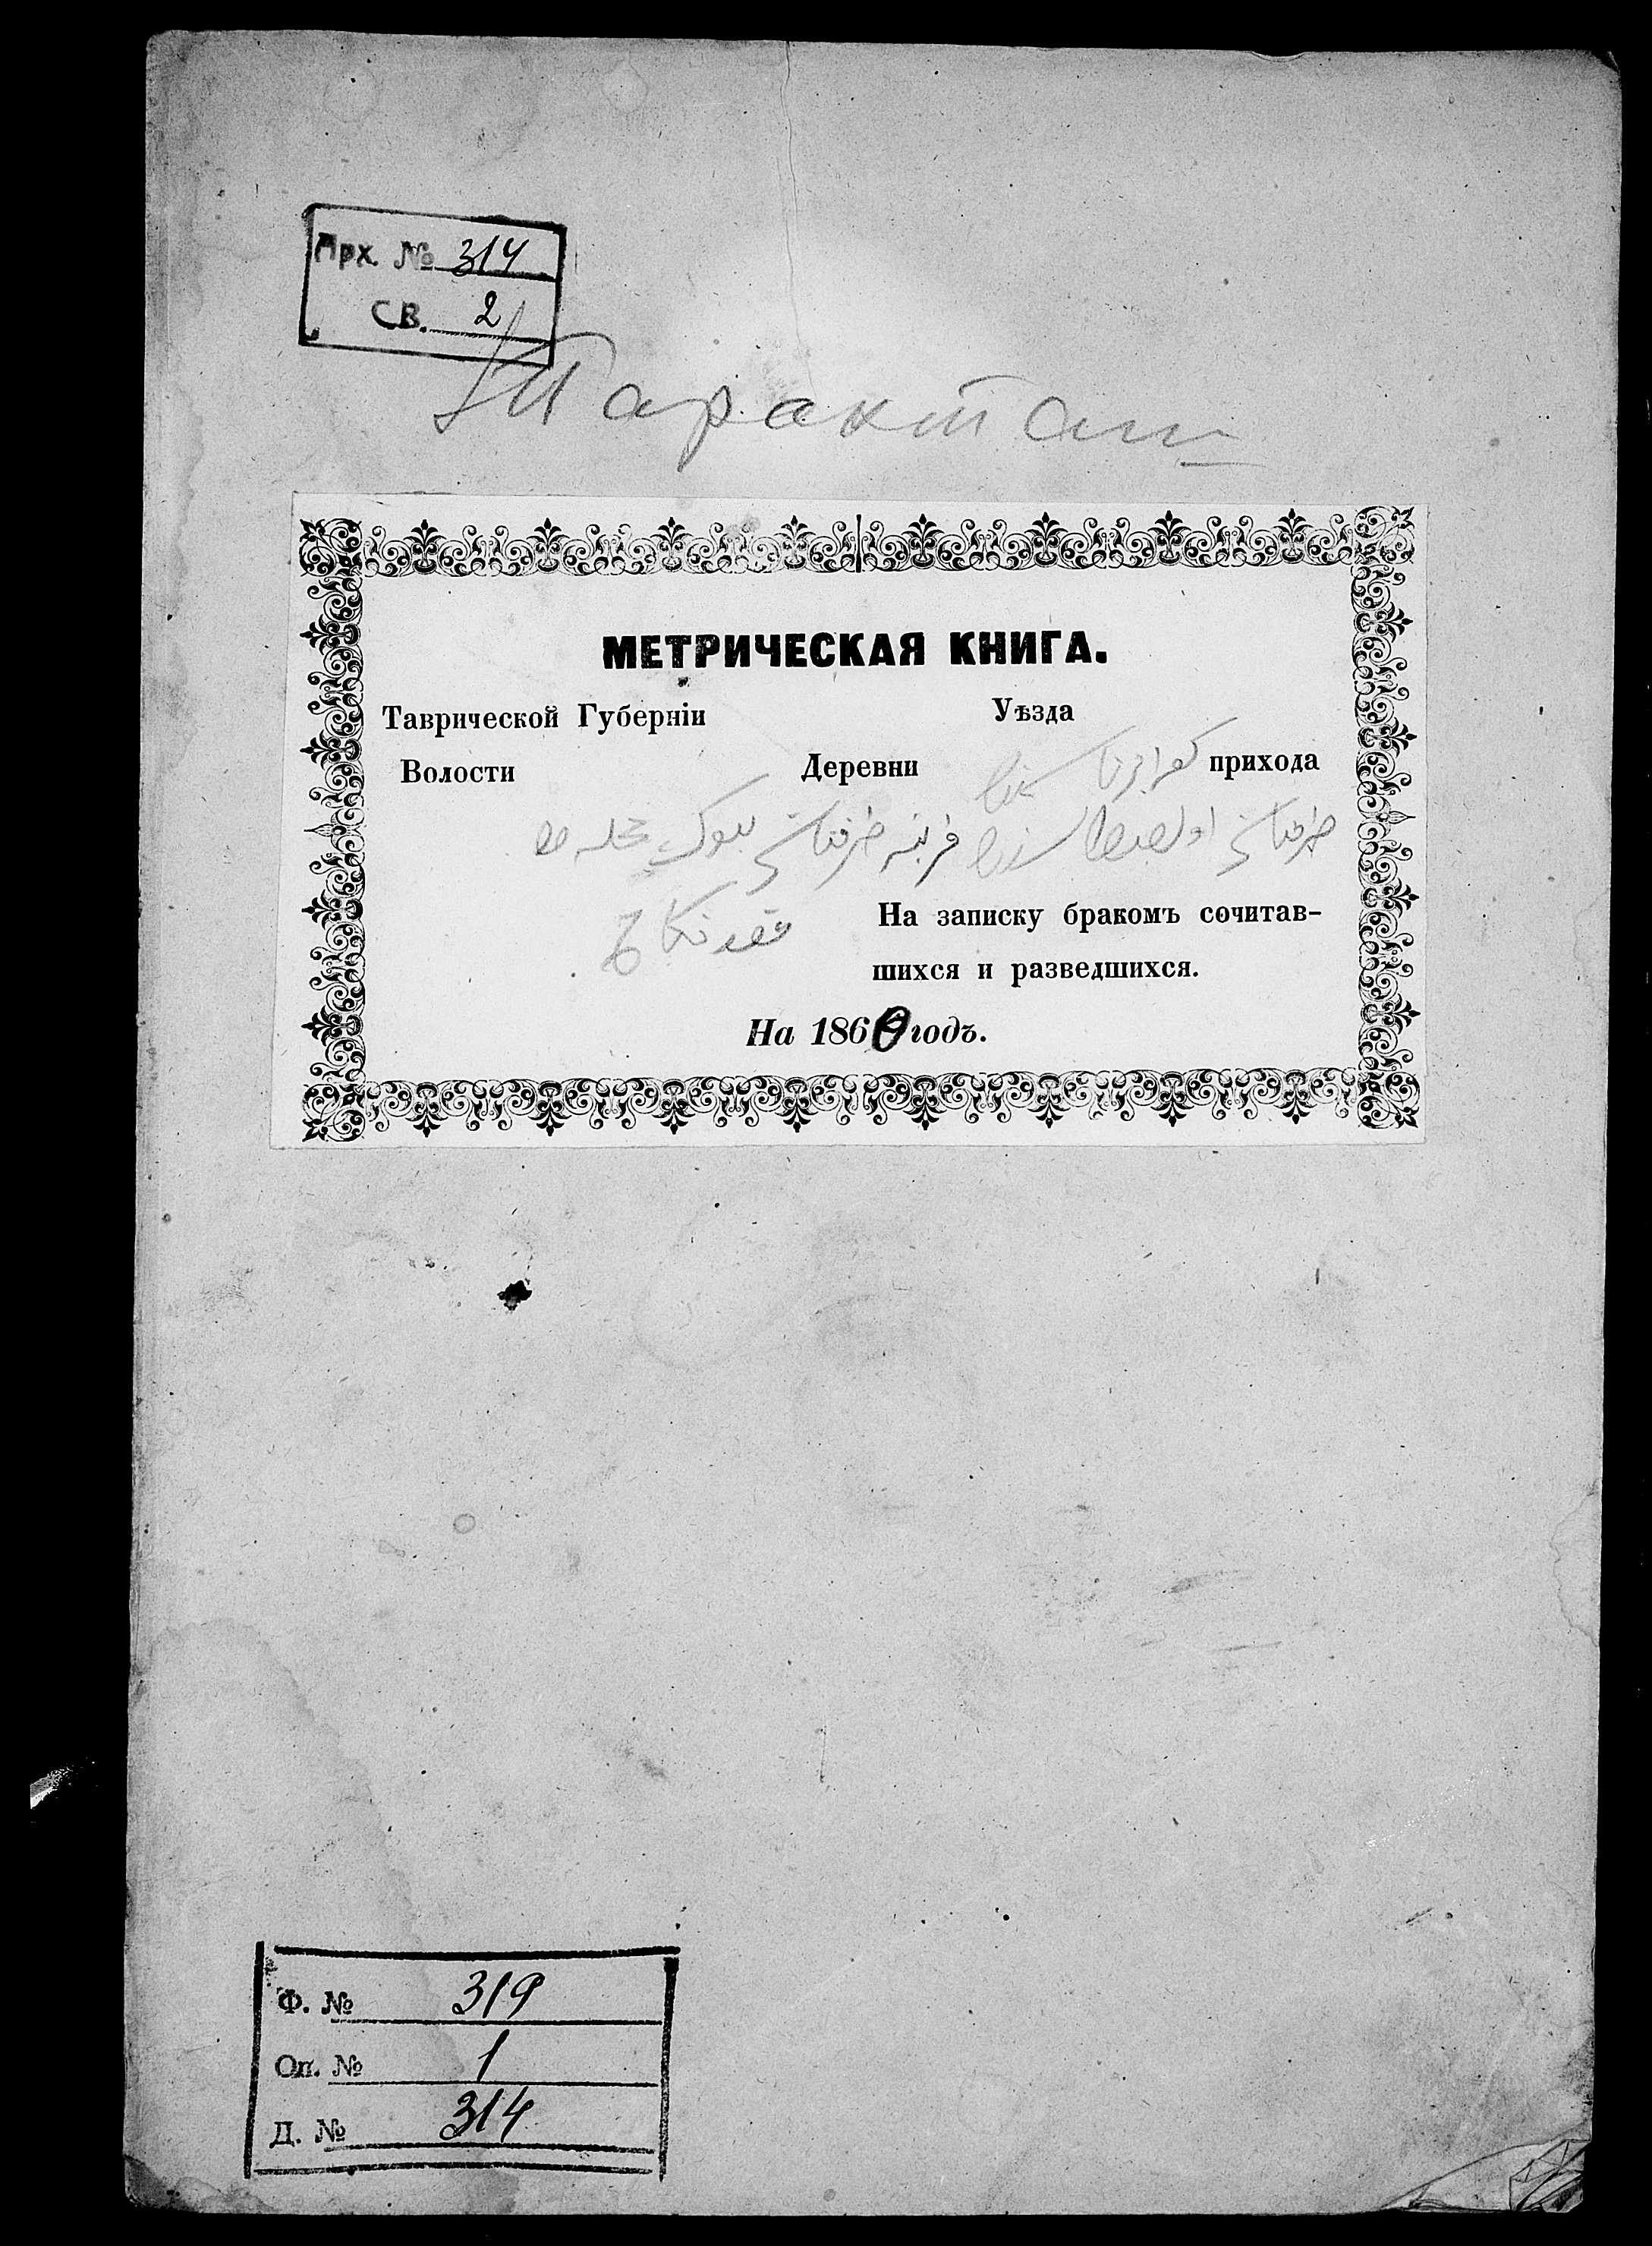 Арх. № 314
СВ. 2
Таракташ
МЕТРИЧЕСКАЯ КНИГА.
Таврической Губерніи Уѣзда
Волости Деревни прихода
قریه سی بیوك محله
عقد نكاح На записку бракомъ сочитав-
шихся и разведшихся.
На 1860 годъ.
Ф. № 319
Оп. № 1
Д. № 314